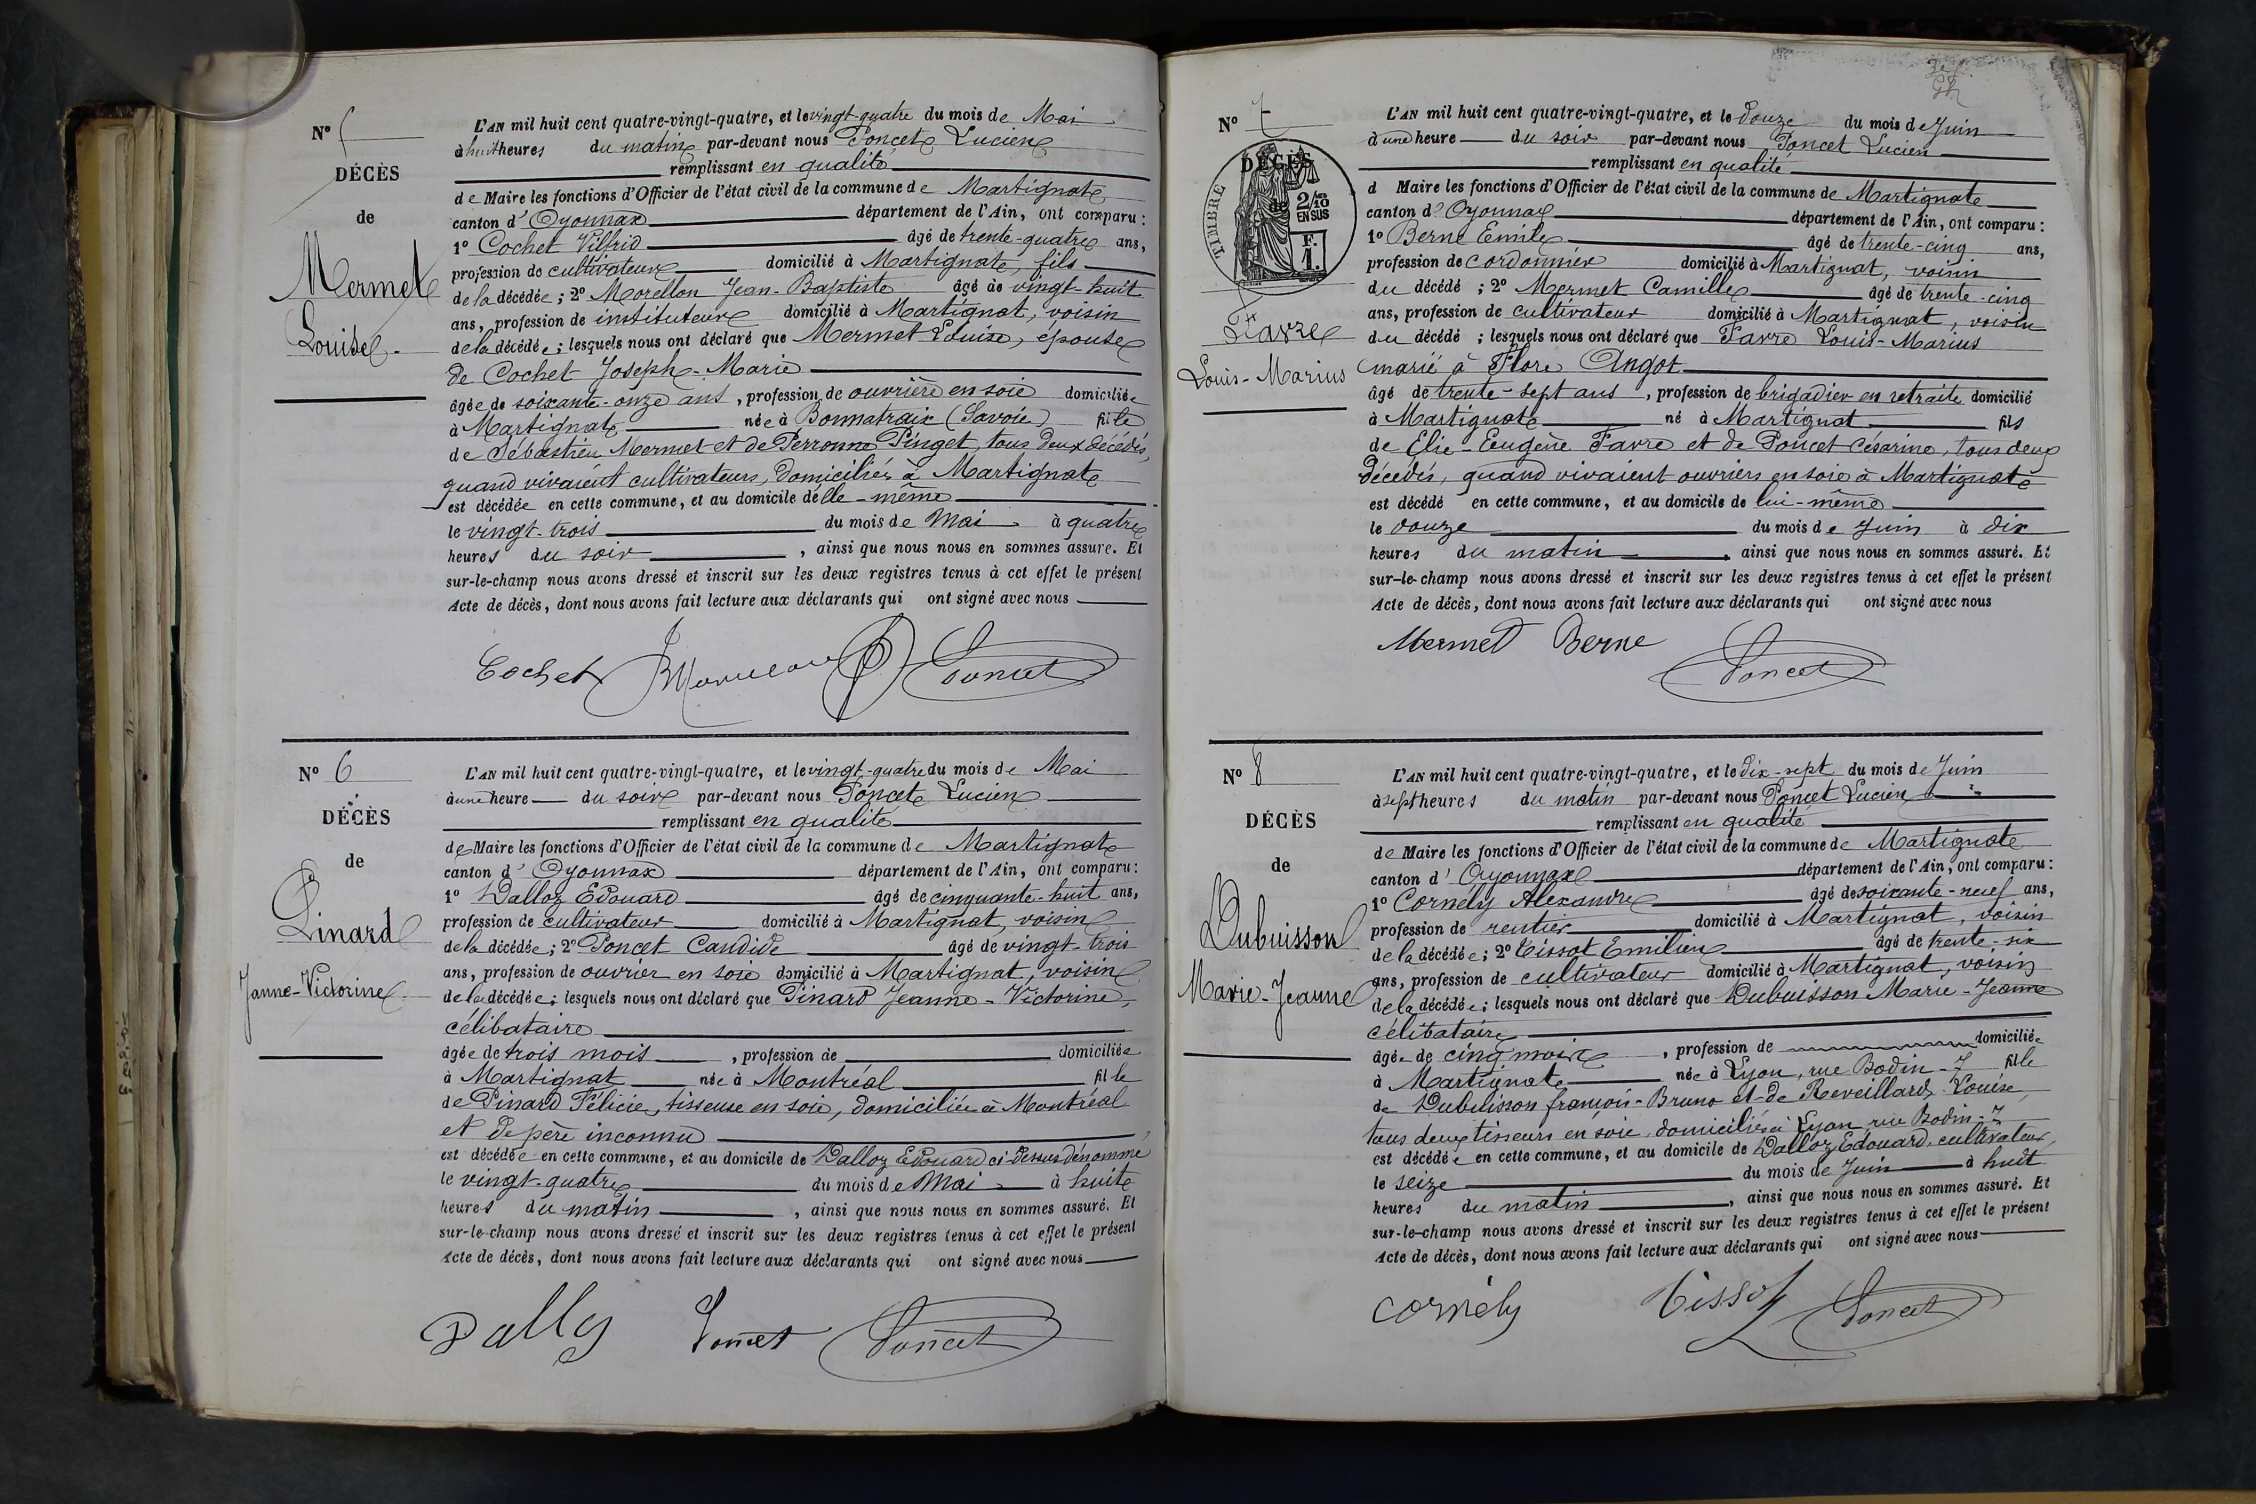 N° 5
DÉCÈS
de
Mermet
Louise
L'AN mil huit cent quatre-vingt-quatre, et le vingt-quatre du mois de Mai
à huit heures du matin par-devant nous Poncet Lucien
remplissant en qualité
de Maire les fonctions d'Officier de l'état civil de la commune de Martignat
canton d'Oyonnax département de l'Ain, ont comparu :
1° Cochet Vilfrid âgé de trente-quatre ans,
profession de cultivateur domicilié à Martignat, fils
de la décédée ; 2° Morellon Jean-Baptiste âgé de vingt-huit
ans, profession de instituteur domicilié à Martignat, voisin
de la décédée ; lesquels nous ont déclaré que Mermet Louise, épouse
de Cochet Joseph-Marie
âgée de soixante-onze ans, profession de ouvrière en soie domiciliée
à Martignat née à Bonnatraix (Savoie) fille
de Sébastien Mermet et de Perronne Pinget, tous deux décédés,
quand vivaient cultivateurs, domiciliés à Martignat
est décédée en cette commune, et au domicile d'elle-même
le vingt-trois du mois de Mai à quatre
heures du soir, ainsi que nous nous en sommes assuré. Et
sur-le-champ nous avons dressé et inscrit sur les deux registres tenus à cet effet le présent
Acte de décès, dont nous avons fait lecture aux déclarants qui ont signé avec nous
Cochet Poncet
N° 6
DÉCÈS
de
Pinard
Janne-Victorine
L'AN mil huit cent quatre-vingt-quatre, et le vingt-quatre du mois de Mai
à une heure du soir par-devant nous Poncet Lucien
remplissant en qualité
de Maire les fonctions d'Officier de l'état civil de la commune de Martignat
canton d'Oyonnax département de l'Ain, ont comparu :
1° Dalloz Edouard âgé de cinquante-huit ans,
profession de cultivateur domicilié à Martignat, voisin
de la décédée ; 2° Poncet Candide âgé de vingt-trois
ans, profession de ouvrier en soie domicilié à Martignat, voisin
de la décédée ; lesquels nous ont déclaré que Pinard Jeanne-Victorine,
célibataire
âgée de trois mois, profession de domiciliée
à Martignat née à Montréal fille
de Pinard Félicie, tisseuse en soie, domiciliée à Montréal
et de père inconnu
est décédée en cette commune, et au domicile de Dalloz Edouard ci-dessus dénommé
le vingt-quatre du mois de Mai à huit
heures du matin, ainsi que nous nous en sommes assuré. Et
sur-le-champ nous avons dressé et inscrit sur les deux registres tenus à cet effet le présent
Acte de décès, dont nous avons fait lecture aux déclarants qui ont signé avec nous
Dalloz Poncet Poncet
N° 7
DÉCÈS
de
TIMBRE
2/10
EN SUS
F.
1.
Favre
Louis-Marius
L'AN mil huit cent quatre-vingt-quatre, et le douze du mois de Juin
à une heure du soir par-devant nous Poncet Lucien
remplissant en qualité
d Maire les fonctions d'Officier de l'état civil de la commune de Martignat
canton d'Oyonnax département de l'Ain, ont comparu :
1° Berne Emile âgé de trente-cinq ans,
profession de cordonnier domicilié à Martignat, voisin
du décédé ; 2° Mermet Camille âgé de trente-cinq
ans, profession de cultivateur domicilié à Martignat, voisin
du décédé ; lesquels nous ont déclaré que Favre Louis-Marius
marié à Flore Angot
âgé de trente-sept ans, profession de brigadier en retraite domicilié
à Martignat né à Martignat fils
de Elie-Eugène Favre et de Poncet Césarine, tous deux
décédés, quand vivaient ouvriers en soie à Martignat
est décédé en cette commune, et au domicile de lui-même
le douze du mois de Juin à dix
heures du matin, ainsi que nous nous en sommes assuré. Et
sur-le-champ nous avons dressé et inscrit sur les deux registres tenus à cet effet le présent
Acte de décès, dont nous avons fait lecture aux déclarants qui ont signé avec nous
Mermet Berne Poncet
N° 8
DÉCÈS
de
Dubuisson
Marie-Jeanne
L'AN mil huit cent quatre-vingt-quatre, et le dix-sept du mois de Juin
à sept heures du matin par-devant nous Poncet Lucien
remplissant en qualité
de Maire les fonctions d'Officier de l'état civil de la commune de Martignat
canton d'Oyonnax département de l'Ain, ont comparu :
1° Cornély Alexandre âgé de soixante-neuf ans,
profession de rentier domicilié à Martignat, voisin
de la décédée ; 2° Tissot Emilien âgé de trente-six
ans, profession de cultivateur domicilié à Martignat, voisin
de la décédée ; lesquels nous ont déclaré que Dubuisson Marie-Jeanne
célibataire
âgée de cinq mois, profession de domiciliée
à Martignat née à Lyon, rue Bodin-7 fille
de Dubuisson françois-Bruno et de Reveillard Louise,
tous deux tisseurs en soie, domiciliés à Lyon rue Bodin-7
est décédée en cette commune, et au domicile de Dalloz Edouard, cultivateur,
le seize du mois de Juin à huit
heures du matin, ainsi que nous nous en sommes assuré. Et
sur-le-champ nous avons dressé et inscrit sur les deux registres tenus à cet effet le présent
Acte de décès, dont nous avons fait lecture aux déclarants qui ont signé avec nous
Cornély Tissot Poncet